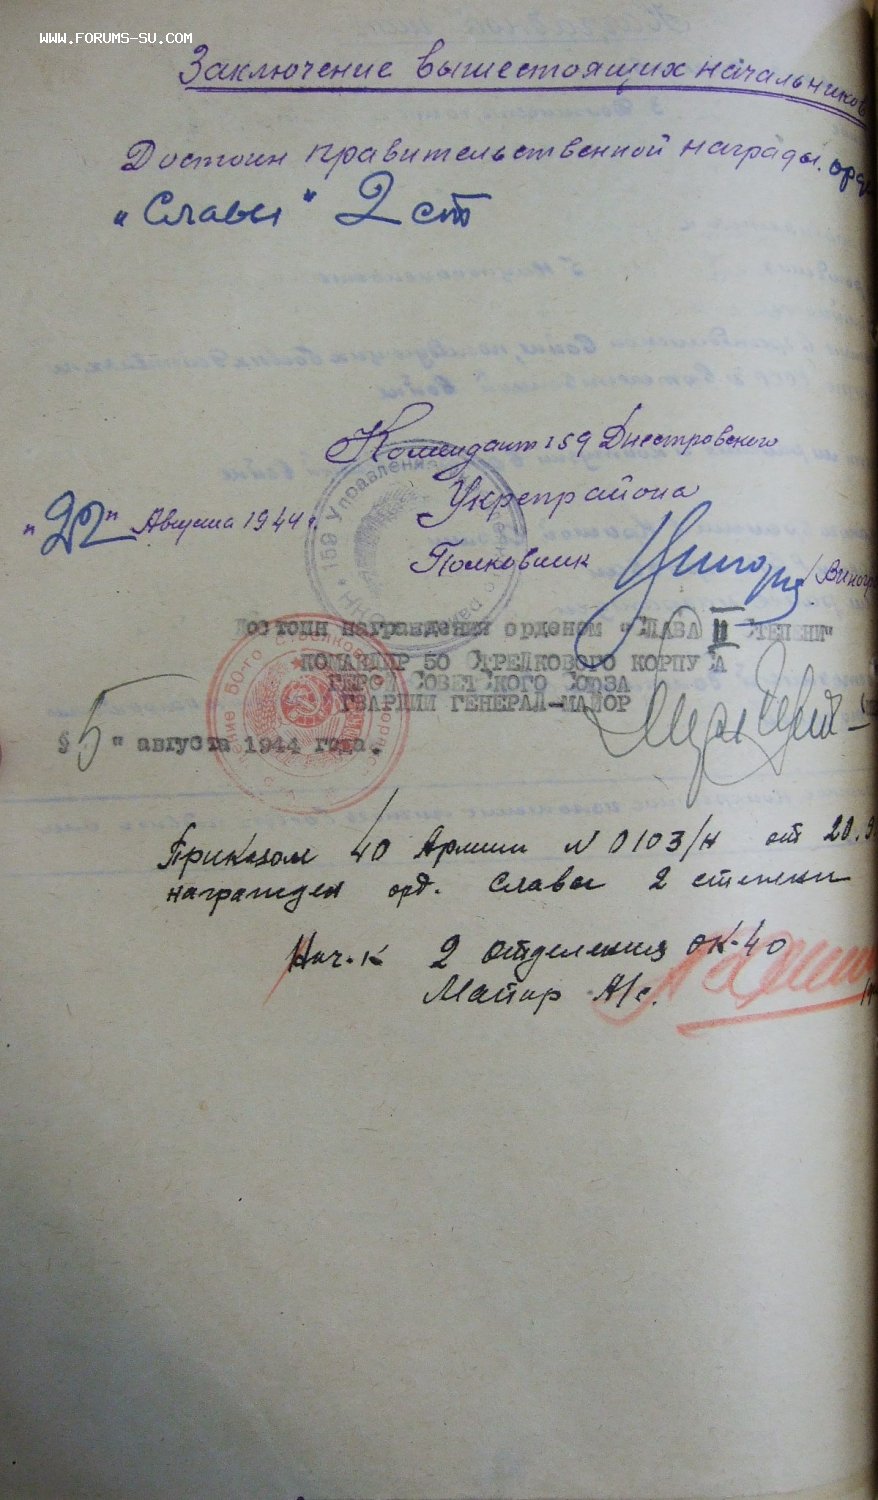 WWW.FORUMS-SU.COM
Заключение вышестоящих начальников
Достоин правительственной награды. орде
"Славы" 2 ст
Комендант 159 Днестровского
Укрепрайона
"22" Августа 1944 г.
Полковник /Виногр
Достоин награждения орденом "СЛАВА II СТЕПЕНИ"
КОМАНДИР 50 СТРЕЛКОВОГО КОРПУСА
ГЕРОЙ СОВЕТСКОГО СОЮЗА
ГВАРДИИ ГЕНЕРАЛ-МАЙОР
5" августа 1944 года.
Приказом 40 Армии N 0103/н от 20.9
награжден орд. Славы 2 степени
Нач-к 2 отделения ОК-40
Майор А/с.